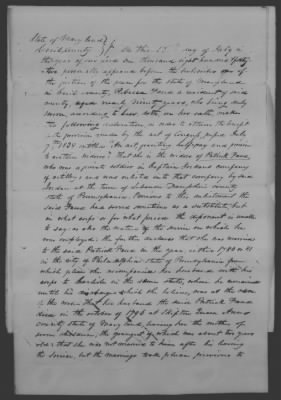 State of Maryland
Cecil county On this 13th day of July in
the year of our Lord One thousand eight hundred &
two personally appeared before the subscriber one of
the justices of the peace for the state of Maryland
in Cecil county, Rebecca a resident of said
county aged nearly ninety years, who being duly
sworn according to law, doth, on her oath, make
the following declaration in order to obtain the benefit
of the provision made by the act of Congress passed July
7th 1838 entitled "An act granting half pay and pensions
to certain widows": That she is the widow of Patrick
who was a private soldier in Captain Jordans company
of artillery and was enlisted into that company by said
Jordan at the town of Lebanon Dauphin county
state of Pennsylvania. Previous to this enlistment the
said had served sometime as a substitute but
in what corps or for what period the deponent is unable
to say or also the nature of the service on which he
was employed. She further declares that she was married
to the said Patrick in the year either 1780 or 81
in the city of Philadelphia state of Pennsylvania from
which place she accompanied her husband with his
corps to Carlisle in the same state, where he remained
until his discharge which she believes was at the close
of the war. That her husband the said Patrick
died in the october of 1796 at
county state of Maryland, leaving her the mother of
seven children, the youngest of which was about two years
old; that she was not married to him after his leaving
the service, but the marriage took place previous to